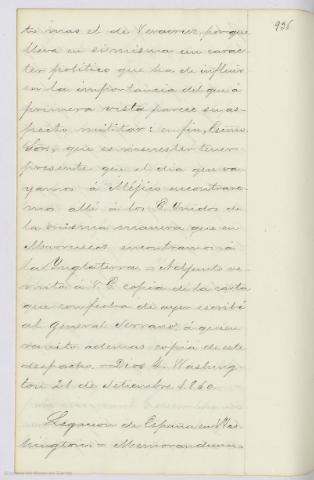 936
to mas el de Veracruz, porque
lleva en si misma un carac-
ter politico que ha de influir
en la importancia del que á
primera vista parece su as-
pecto militar: en fin, Excmo
Sor, que es menester tener
presente que el dia que va-
yamos á Méjico encontrare-
mos allí á los E. Unidos de
la misma manera que en
Marruecos encontramos á
la Ynglaterra = Adjunto re-
mito á V. E. copia de la carta
que con fecha de ayer escribí
al General Serrano á quien
remito ademas copia de este
despacho = Dios &. Washing-
ton 21 de Setiembre 1860.
Legacion de España en Was-
hington = Memorandum